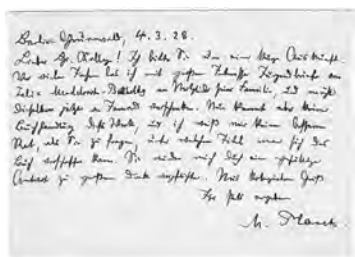 Berlin-Grunewald, 4. 3. 28.
Lieber Hr. Kollege! Ich bitte Sie um eine kurze Auskunft.
Vor vielen Jahren hab ich mit großem Interesse Jugendbriefe von
Felix Mendelssohn-Bartholdy an Mitglieder seiner Familie, und möchte
dieselben jetzt an Jemand verschenken. Nun kennt aber keine
Buchhandlung dieses Werk, und ich weiß mir keinen besseren
Rat, als Sie zu fragen, unter welchem Titel man sich das
Buch verschaffen kann. Sie würden mich durch eine gefällige
Antwort zu großem Dank verpflichten. Mit herzlichem Gruß
Ihr stets ergebener
M. Planck.